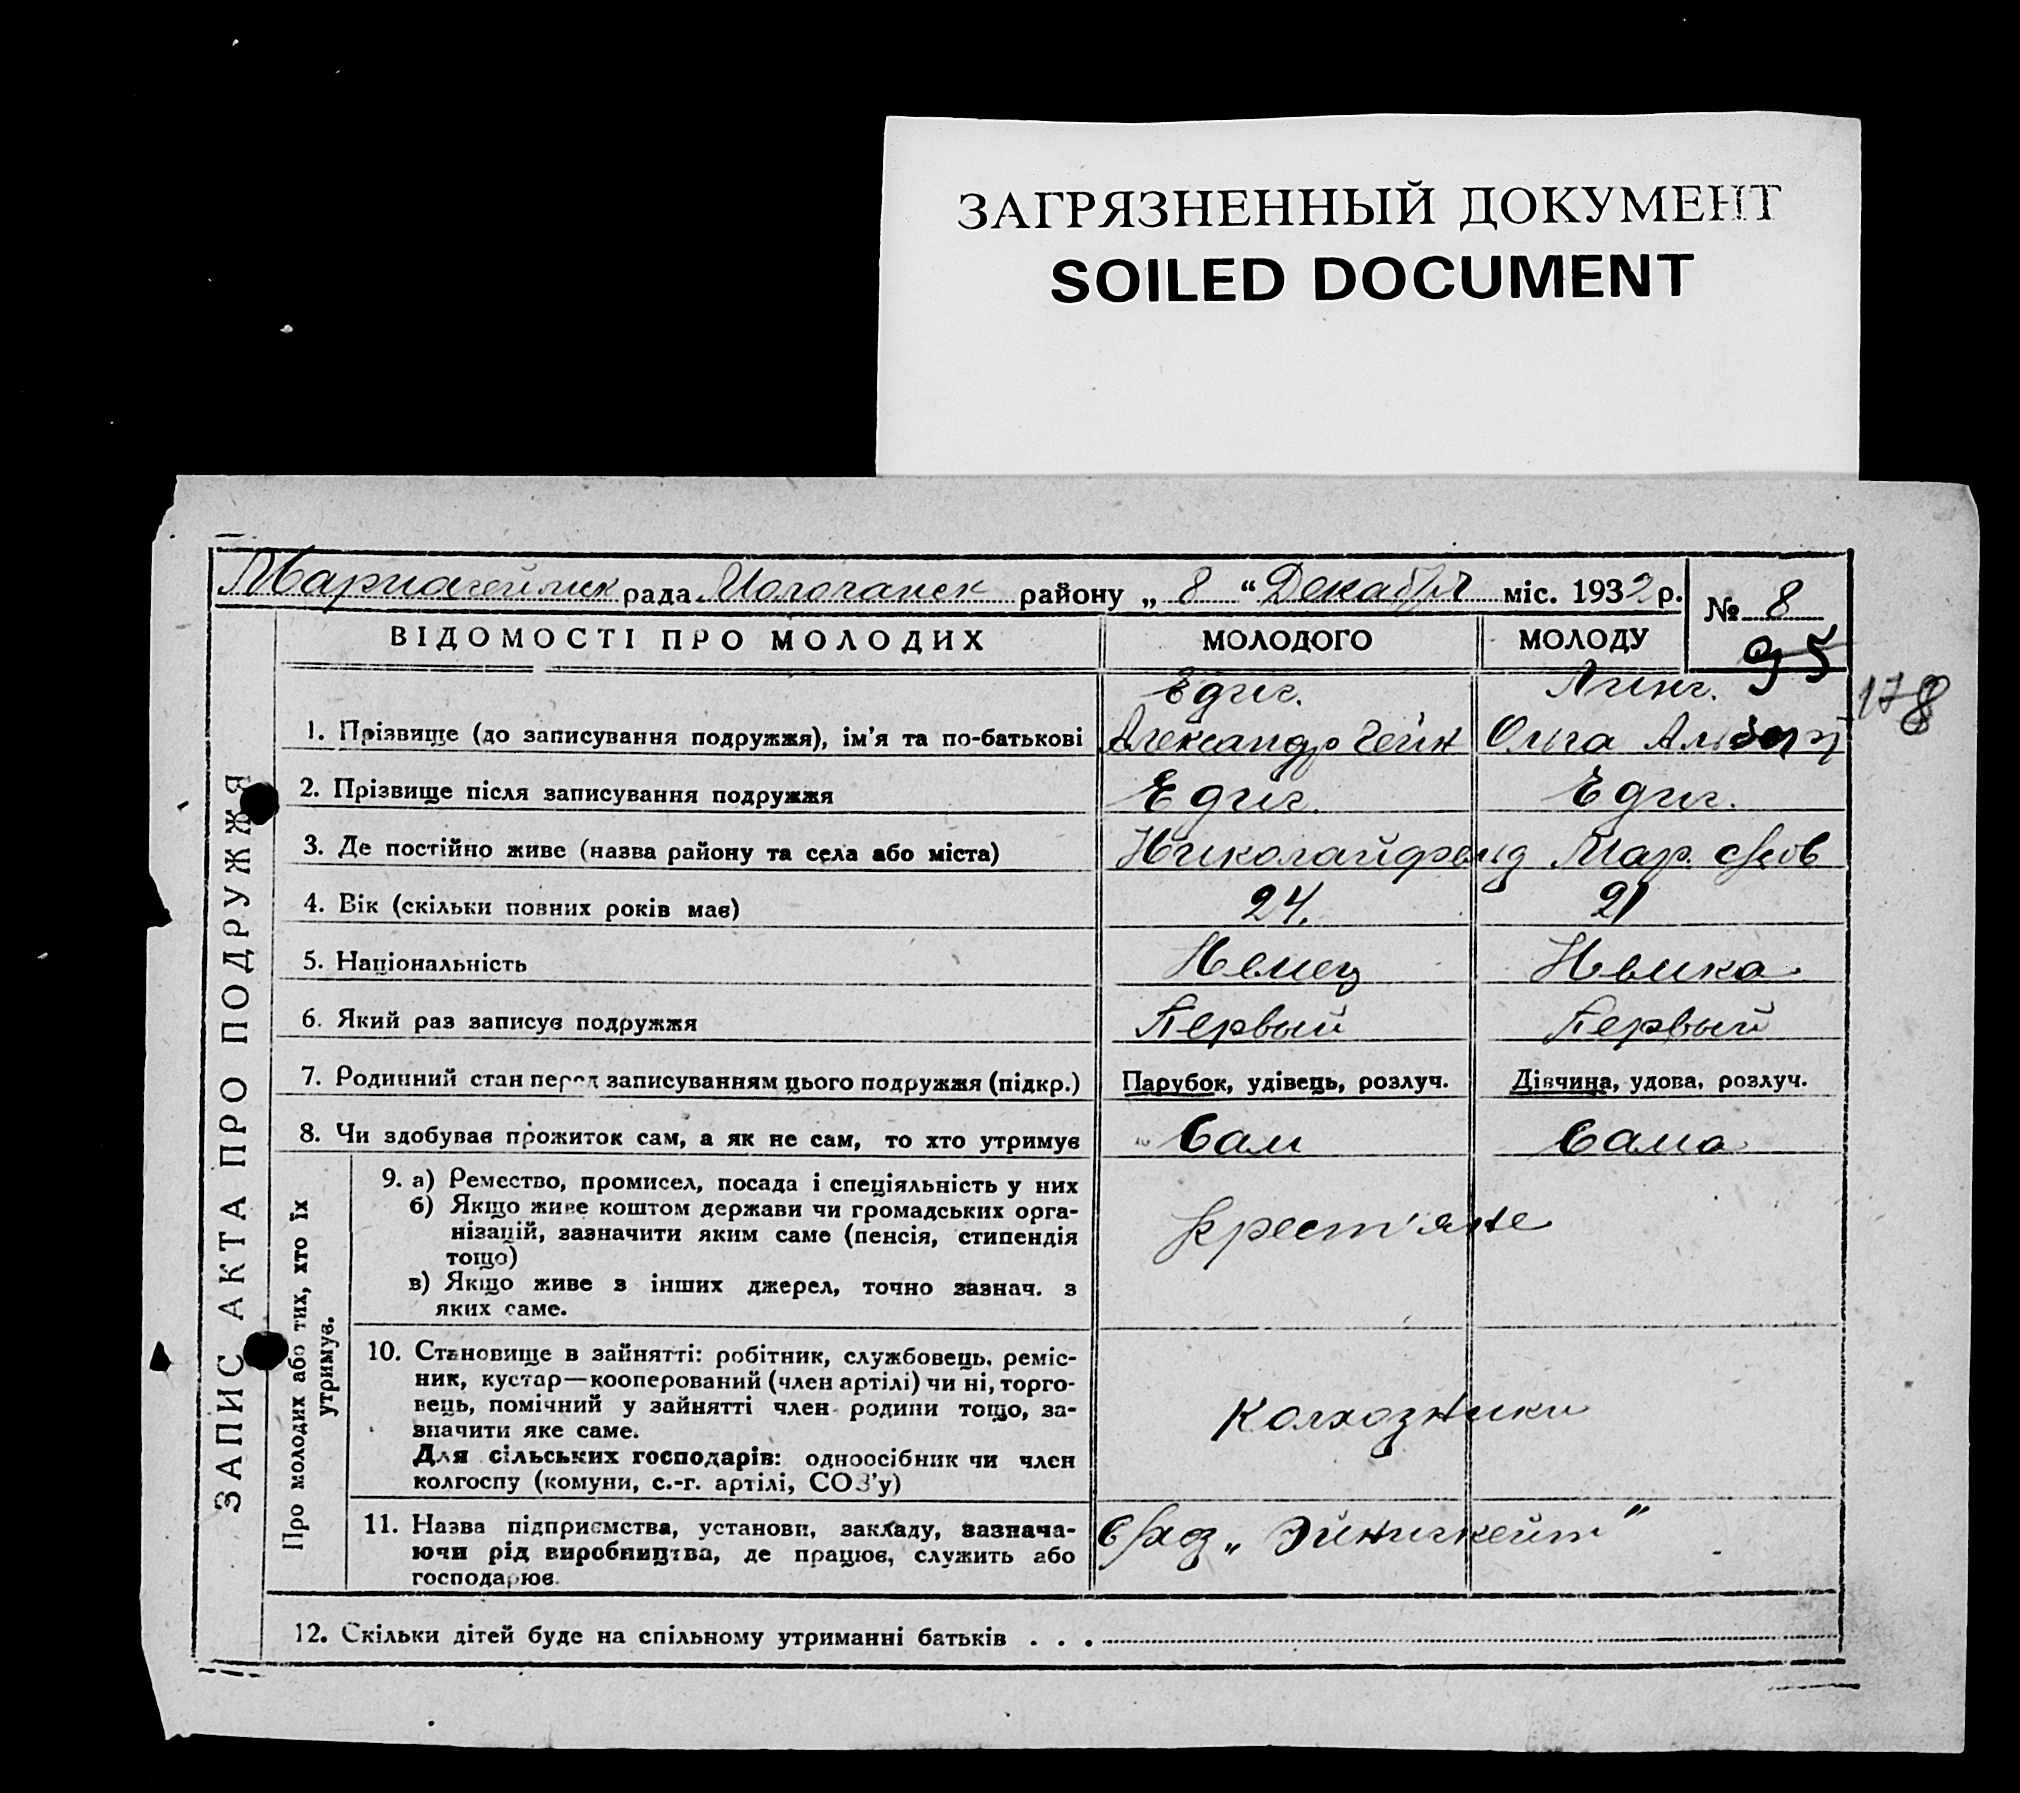 ЗАГРЯЗНЕННЫЙ ДОКУМЕНТ
SOILED DOCUMENT
рада Молочанск району „ 8 “ Декабря міс. 1932 р.
№ 8
95
178
ЗАПИС АКТА ПРО ПОДРУЖЖЯ
ВІДОМОСТІ ПРО МОЛОДИХ МОЛОДОГО МОЛОДУ
Едиг.
1. Прізвище (до записування подружжя), ім'я та по-батькові Александр Гейн Ольга Альберт
2. Прізвище після записування подружжя Едиг. Едиг.
3. Де постійно живе (назва району та села або міста) Николайфельд Мар.
4. Вік (скільки повних років має) 24. 21
5. Національність Немец Немка
6. Який раз записує подружжя Первый Первый
7. Родинний стан перед записуванням цього подружжя (підкр.) Парубок, удівець, розлуч. Дівчина, удова, розлуч.
8. Чи здобував прожиток сам, а як не сам, то хто утримує Сам Сама
Про молодих або тих, хто їх
утримує.
9. а) Ремество, промисел, посада і спеціяльність у них
б) Якщо живе коштом держави чи громадських орга-
нізацій, зазначити яким саме (пенсія, стипендія
тощо)
в) Якщо живе з інших джерел, точно зазнач. з
яких саме.
Крест'яне
10. Становище в зайнятті: робітник, службовець, реміс-
ник, кустар—кооперований (член артілі) чи ні, торго-
вець, помічний у зайнятті член родини тощо, за-
значити яке саме.
Для сільських господарів: одноосібник чи член
колгоспу (комуни, с.-г. артілі, СОЗ'у)
Колхозники
11. Назва підприємства, установи, закладу, зазнача-
ючи рід виробництва, де працює, служить або
господарює.
„Эйнигкейт“
12. Скільки дітей буде на спільному утриманні батьків . . .